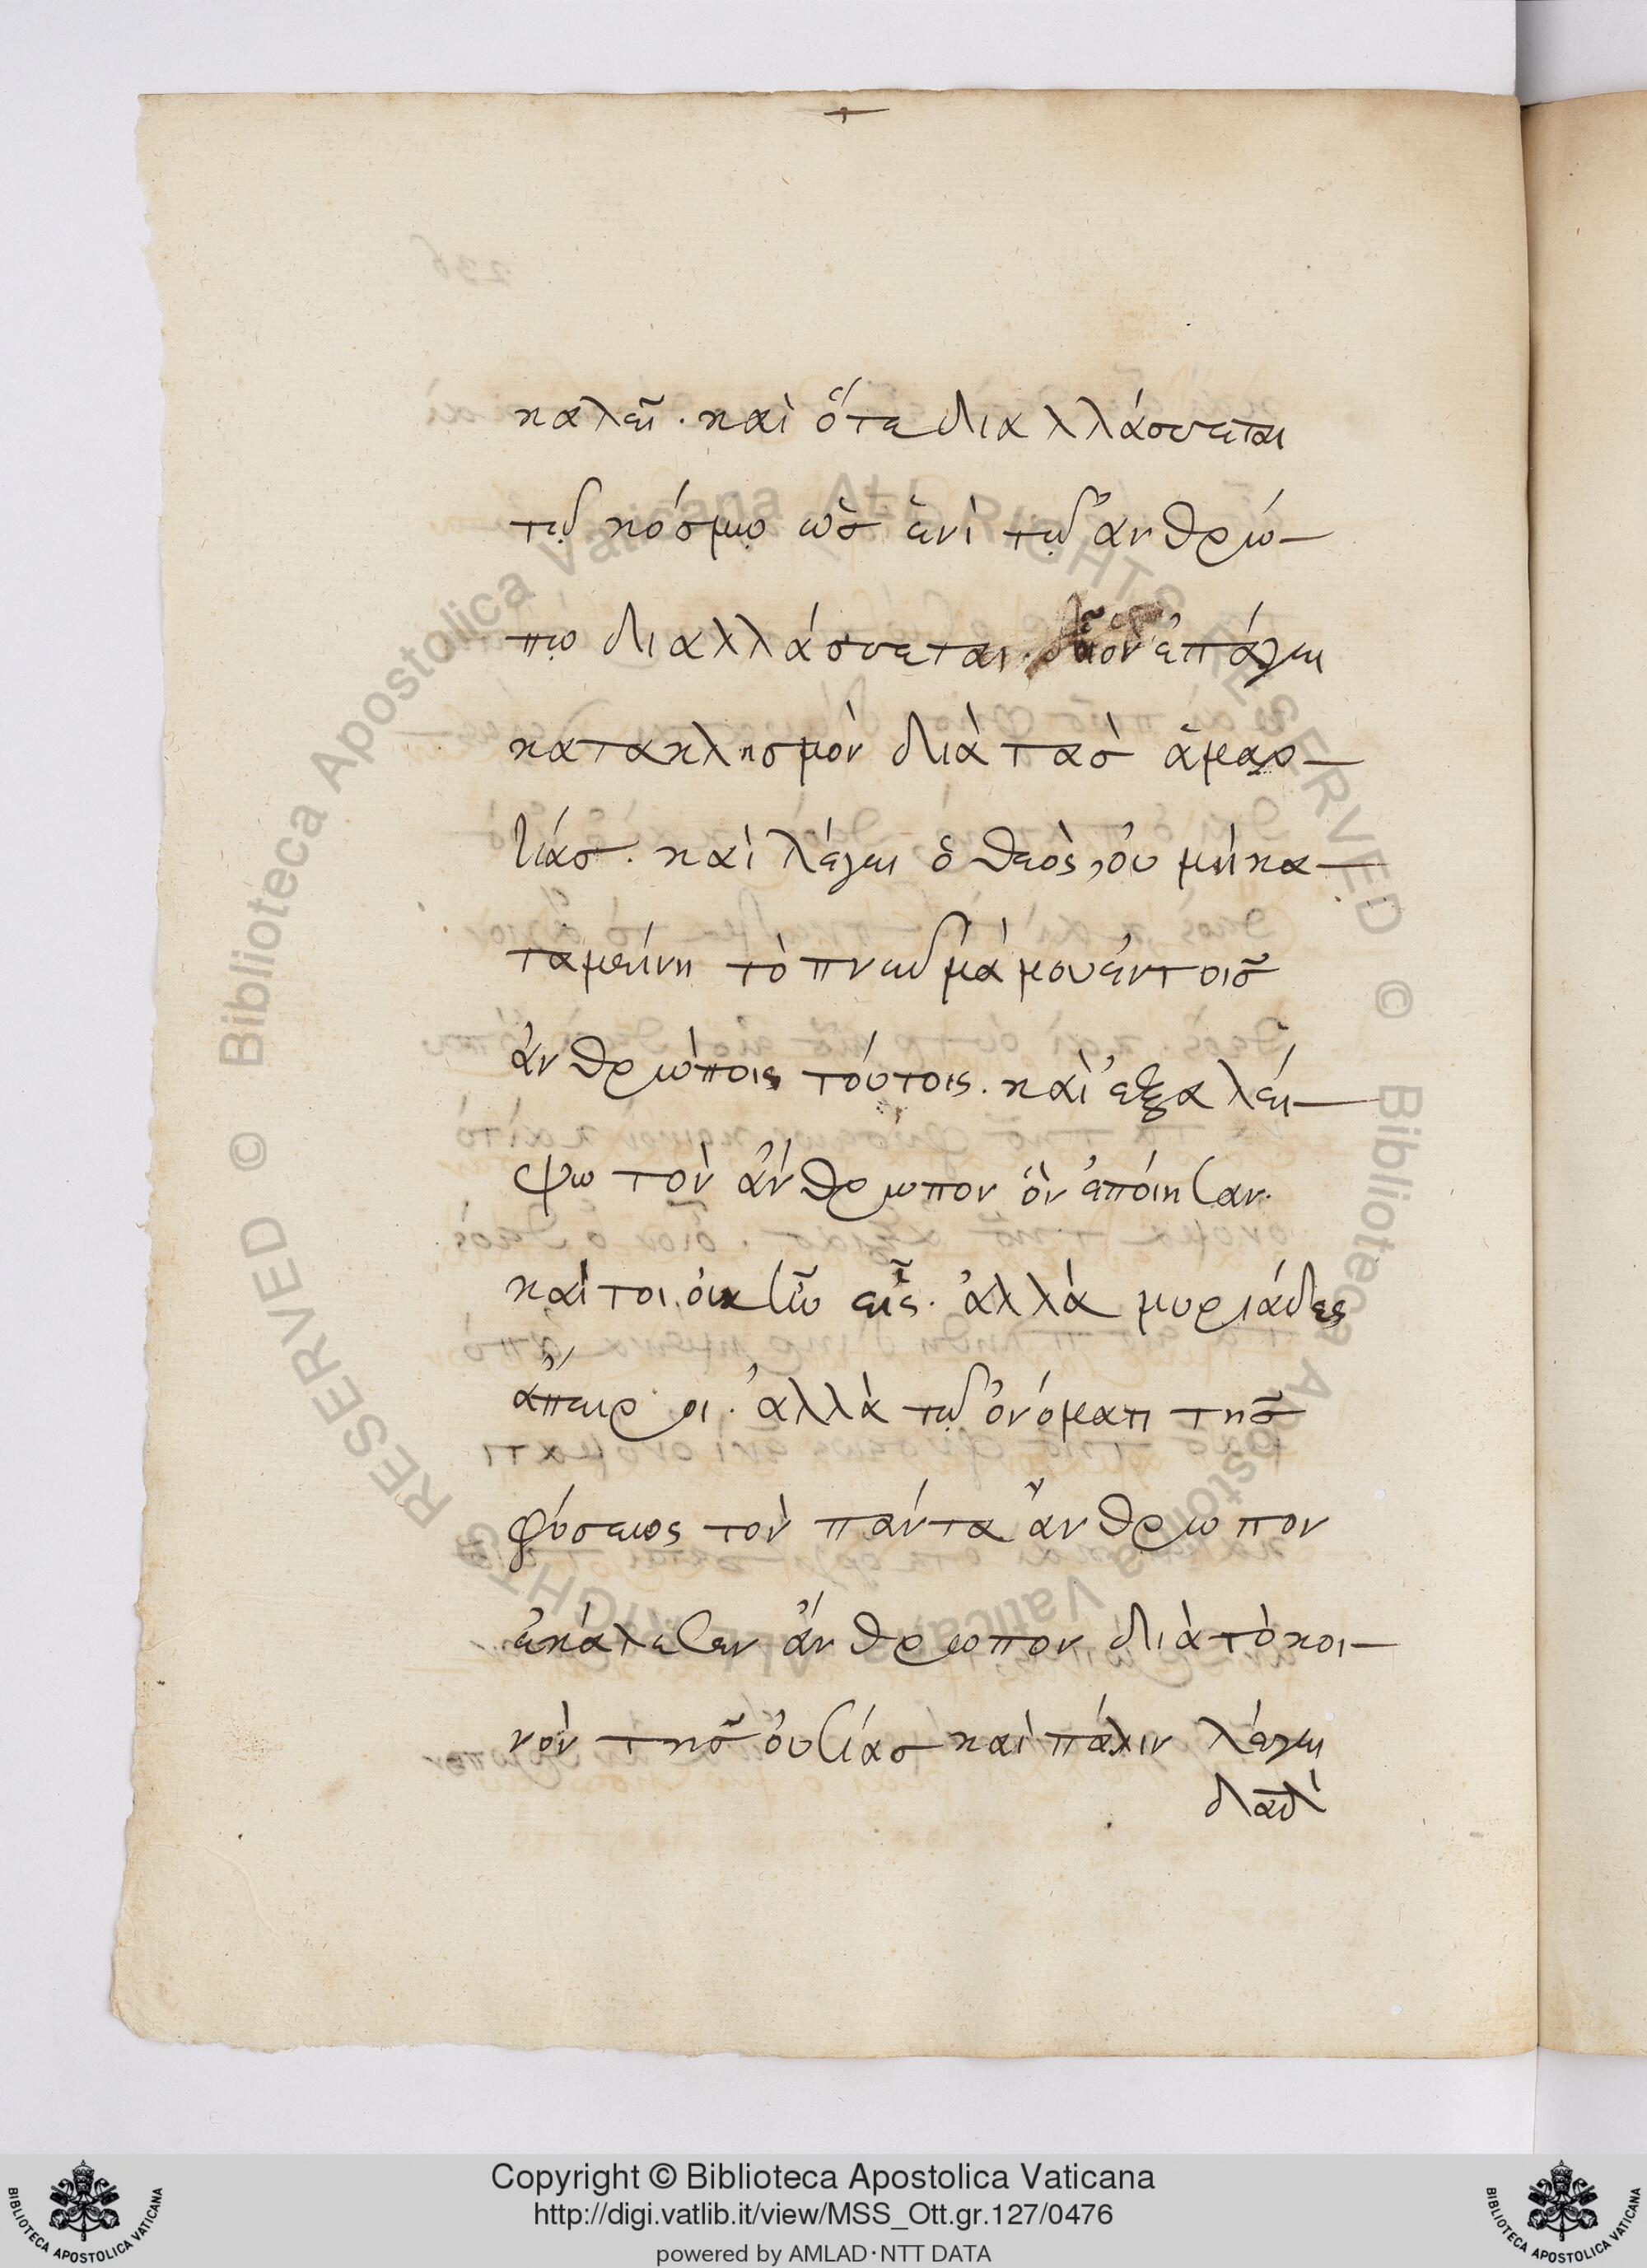 καλεῖ. καὶ ὅτε διαλλάσσεται
τῷ κόσμῳ ὡς ἑνὶ τῷ ἀνθρώ-
πῳ διαλλάσσεται. οἷον ἐπάγει
κατακλησμὸν διὰ τὰς ἁμαρ-
τίας. καὶ λέγει ὁ θεὸς, οὐ μὴ κα-
ταμείνῃ τὸ πνεῦμά μου ἐν τοῖς
ἀνθρώποις τούτοις. καὶ ἐξαλεί-
ψω τὸν ἄνθρωπον ὃν ἐποίησαν.
καίτοι οὐκ ἦν εἷς. ἀλλὰ μυριάδες
ἄπειροι. ἀλλὰ τῷ ὀνόματι τῆς
φύσεως τὸν πάντα ἄνθρωπον
ἐκάλεσεν ἄνθρωπον διὰ τὸ κοι-
νὸν τῆς οὐσίας καὶ πάλιν λέγει
δαδ
Copyright © Biblioteca Apostolica Vaticana
http://digi.vatlib.it/view/MSS_Ott.gr.127/0476
powered by AMLAD·NTT DATA
BIBLIOTECA APOSTOLICA VATICANA
BIBLIOTECA APOSTOLICA VATICANA
© Biblioteca Apostolica Vaticana ALL RIGHTS RESERVED
© Biblioteca Apostolica Vaticana ALL RIGHTS RESERVED